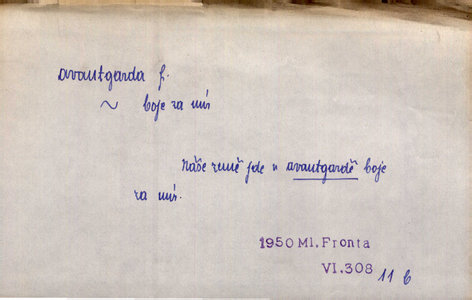 avantgarda f.
~ boje za mír
Naše země jde v avantgardě boje
za mír.
1950 Ml. Fronta
VI.308 11 6